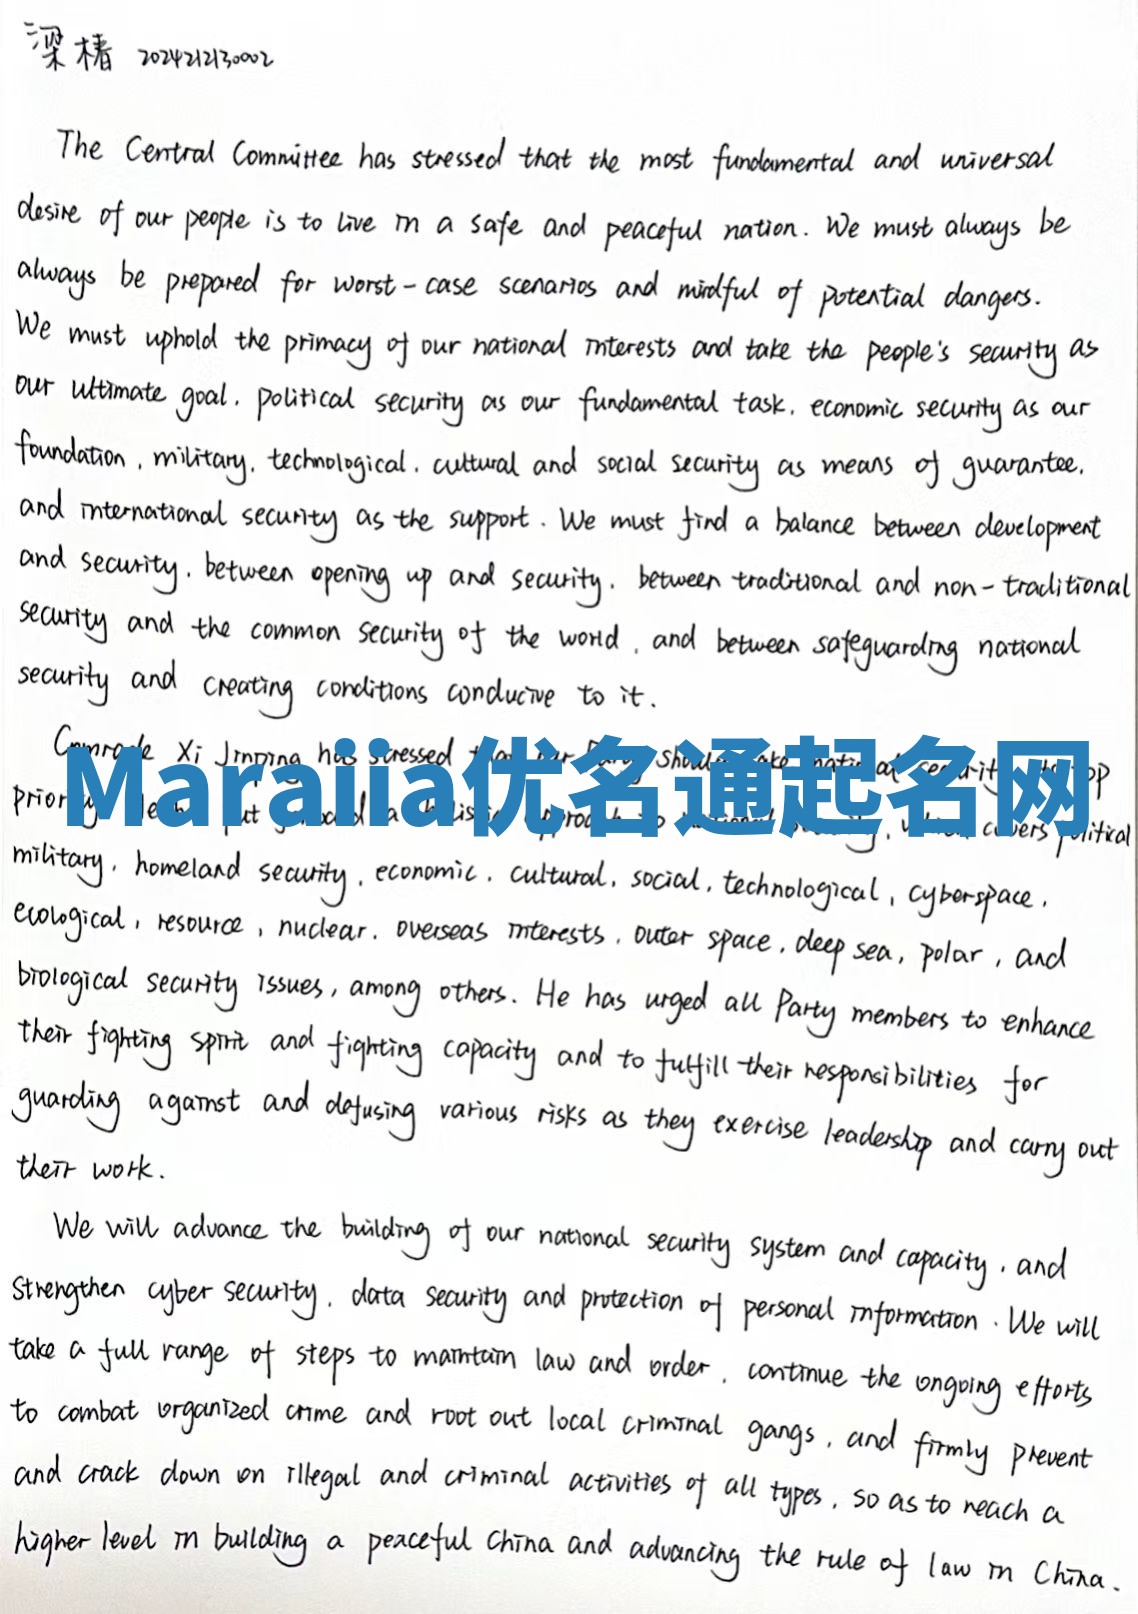 梁椿 2024212130002
The Central Committee has stressed that the most fundamental and universal
desire of our people is to live in a safe and peaceful nation. We must always be
always be prepared for worst-case scenarios and mindful of potential dangers.
We must uphold the primacy of our national interests and take the people's security as
our ultimate goal, political security as our fundamental task, economic security as our
foundation, military, technological, cultural and social security as means of guarantee,
and international security as the support. We must find a balance between development
and security, between opening up and security, between traditional and non-traditional
security and the common security of the world, and between safeguarding national
security and creating conditions conducive to it.
Comrade Xi Jinping has stressed that our Party should take national security its top
Maraiia优名通起名网
priority. put a holistic approach to national security, which covers political
military, homeland security, economic, cultural, social, technological, cyberspace,
ecological, resource, nuclear, overseas interests, outer space, deep sea, polar, and
biological security issues, among others. He has urged all Party members to enhance
their fighting spirit and fighting capacity and to fulfill their responsibilities for
guarding against and defusing various risks as they exercise leadership and carry out
their work.
We will advance the building of our national security system and capacity, and
strengthen cyber security, data security and protection of personal information. We will
take a full range of steps to maintain law and order, continue the ongoing efforts
to combat organized crime and root out local criminal gangs, and firmly prevent
and crack down on illegal and criminal activities of all types, so as to reach a
higher level in building a peaceful China and advancing the rule of law in China.